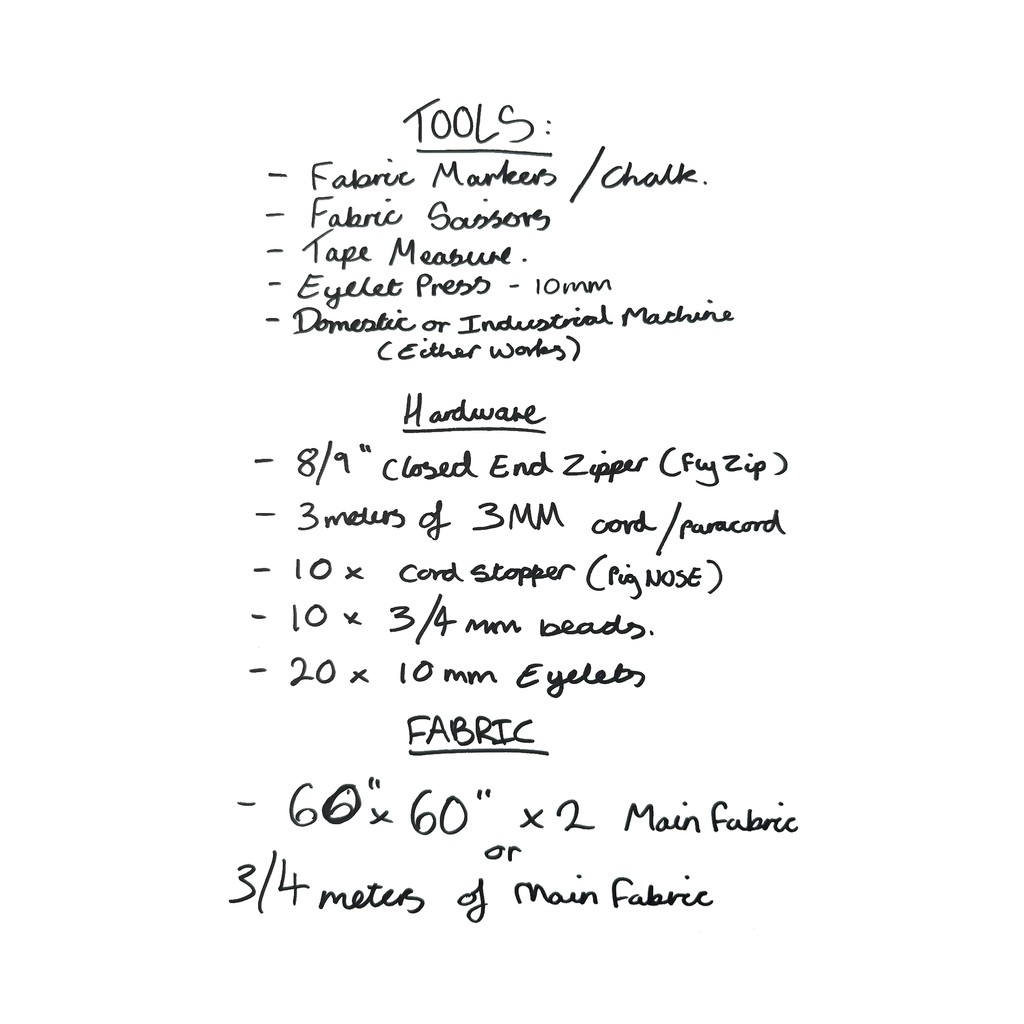 TOOLS:
- Fabric Markers / Chalk.
- Fabric Scissors
- Tape Measure.
- Eyelet Press - 10mm
- Domestic or Industrial Machine
(Either Works)
Hardware
- 8/9" Closed End Zipper (Fly Zip)
- 3 meters of 3MM cord/paracord
- 10 x Cord Stopper (Pig NOSE)
- 10 x 3/4 mm beads.
- 20 x 10 mm Eyelets
FABRIC
- 60" x 60" x 2 Main Fabric
or
3/4 meters of Main Fabric